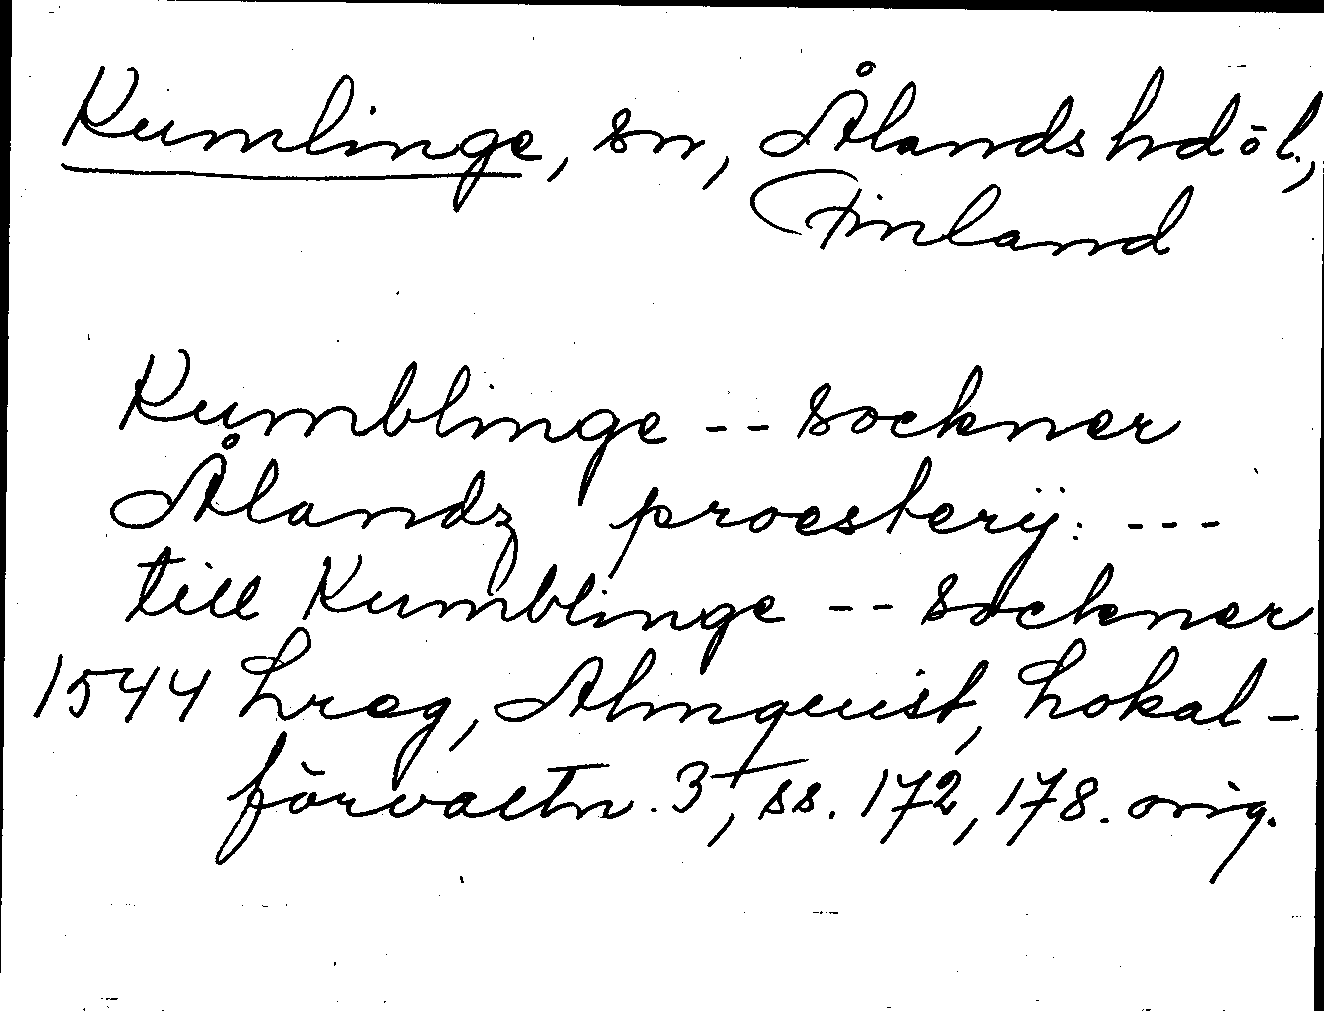 Kumlinge, sn, Ålands hd ö l.,
Finland
Kumblinge -- sockner
Ålandz proesterij: ---
till Kumblinge -- sockner
1544 Lreg, Almquist, Lokal-
förvaltn. 3, ss. 172, 178. orig.